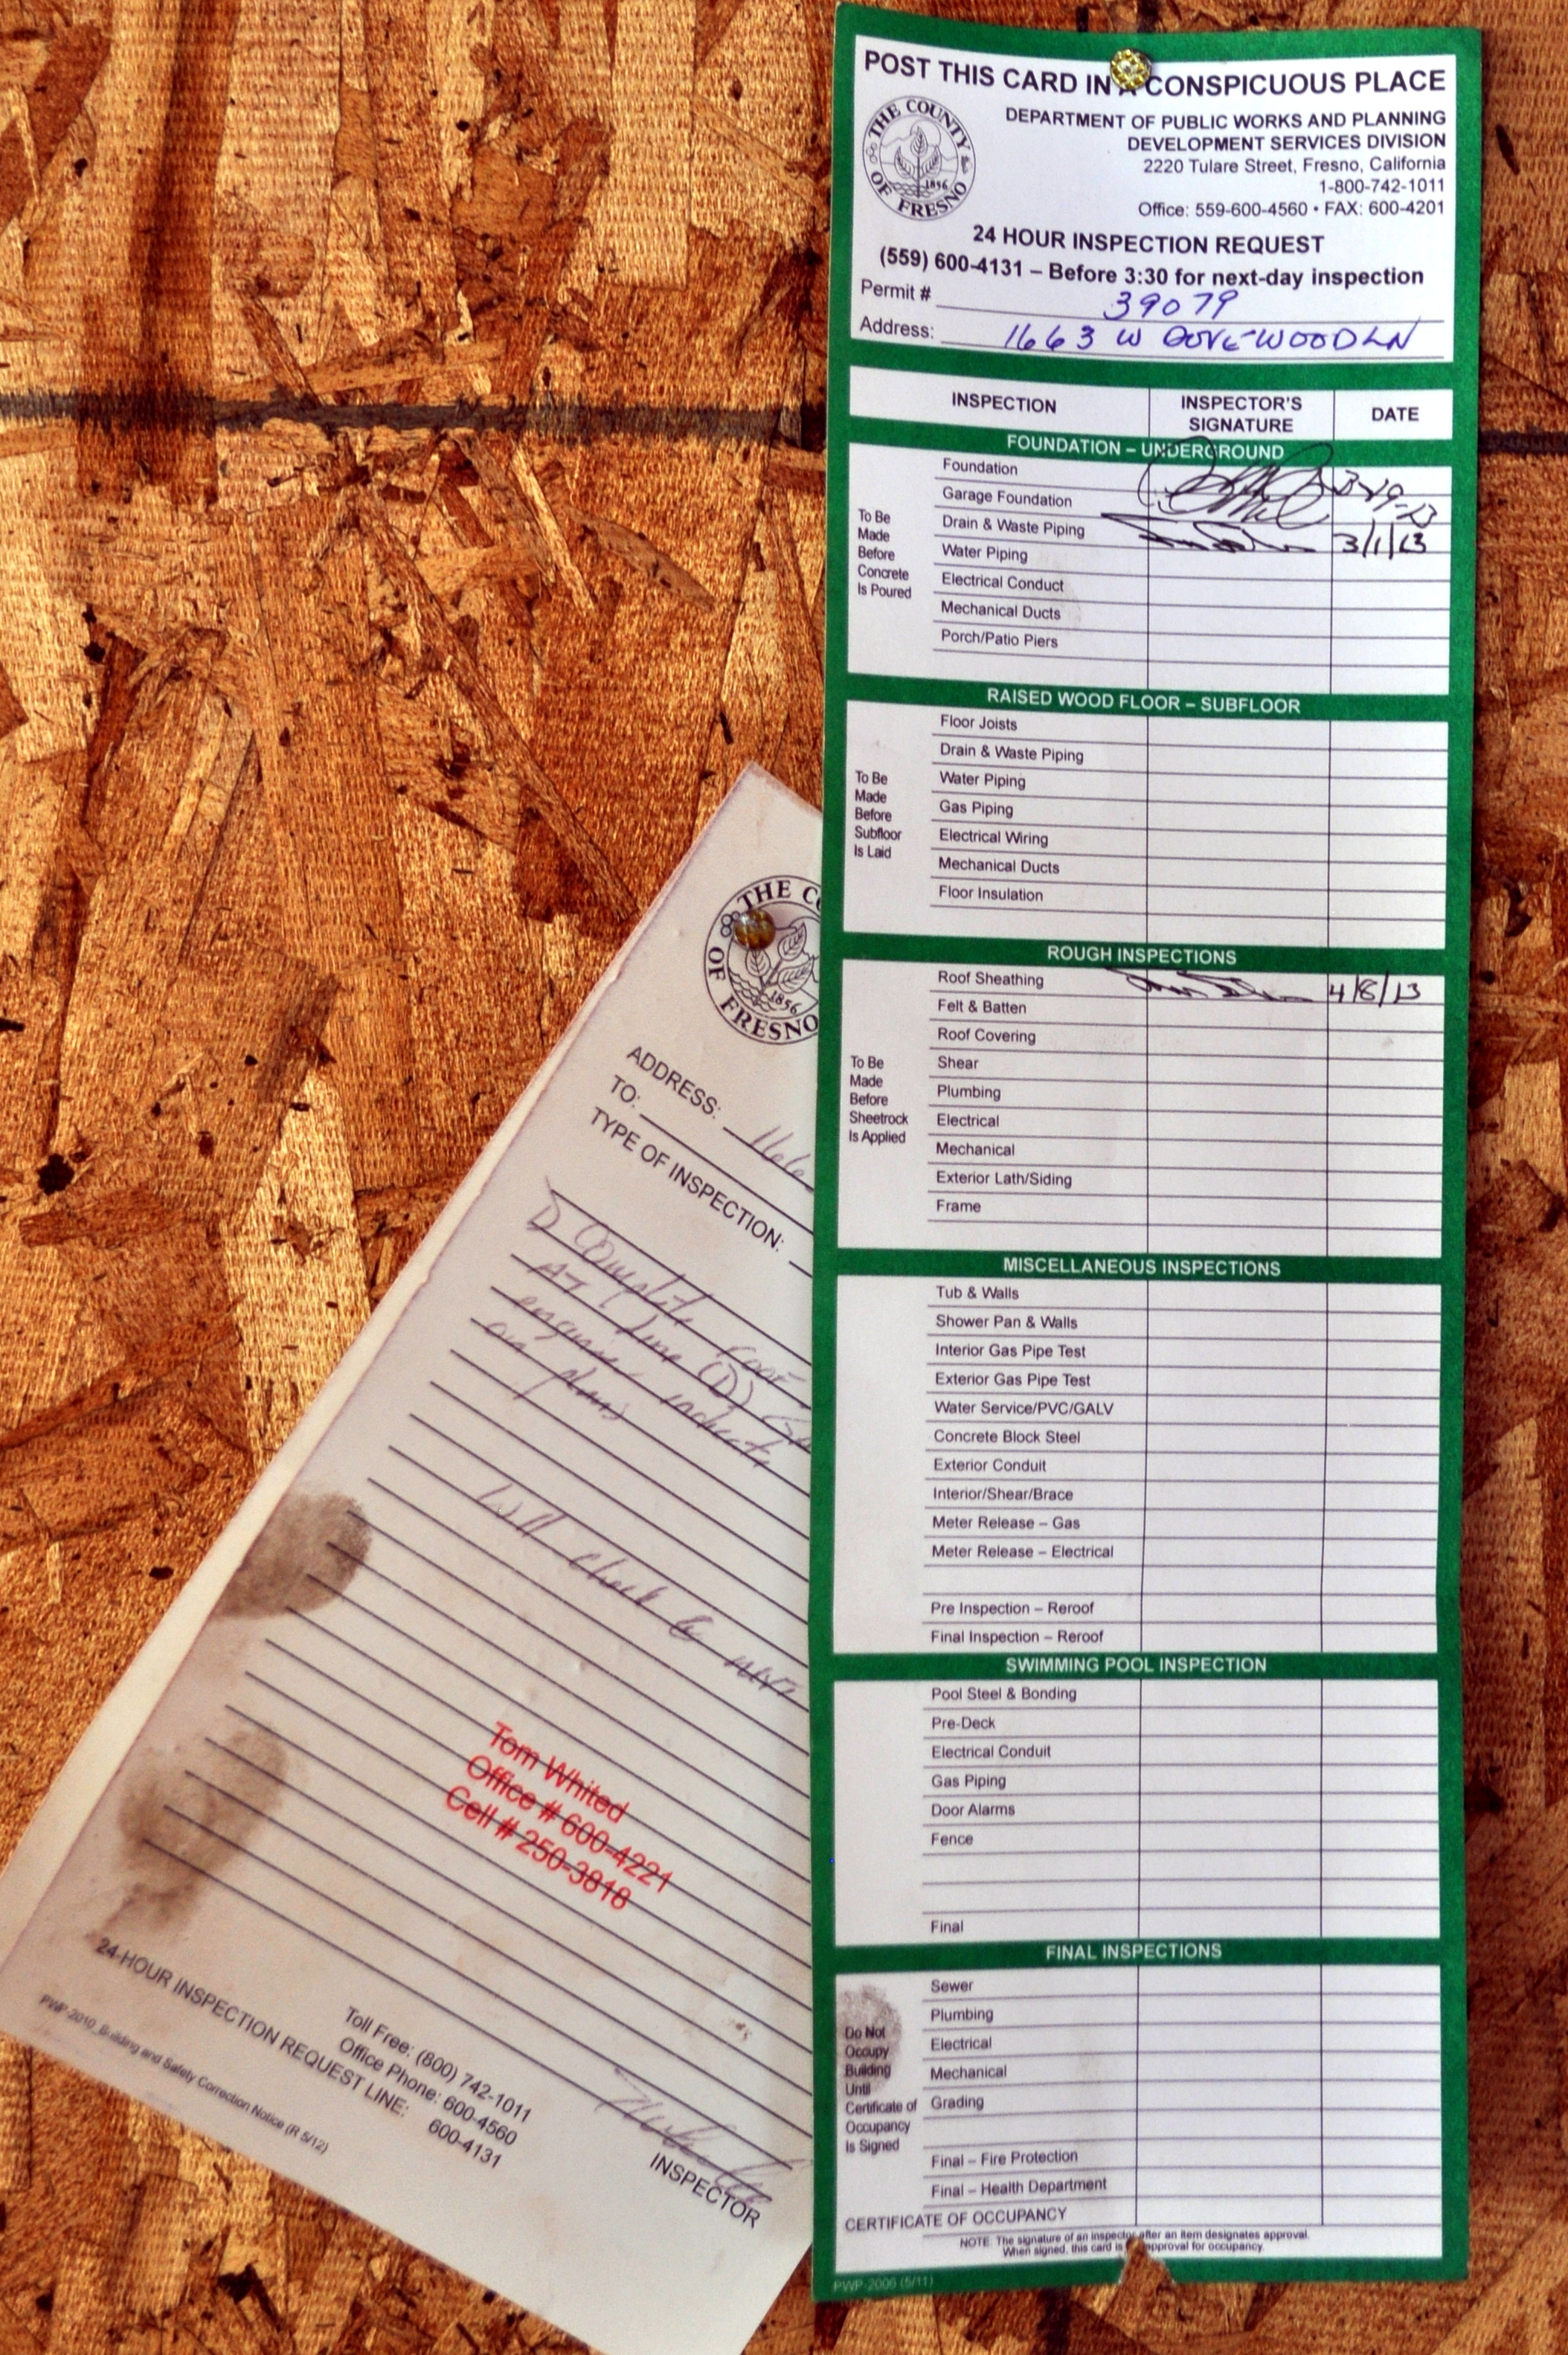 POST THIS CARD IN A CONSPICUOUS PLACE
THE COUNTY OF FRESNO
1856
DEPARTMENT OF PUBLIC WORKS AND PLANNING
DEVELOPMENT SERVICES DIVISION
2220 Tulare Street, Fresno, California
1-800-742-1011
Office: 559-600-4560 • FAX: 600-4201
24 HOUR INSPECTION REQUEST
(559) 600-4131 – Before 3:30 for next-day inspection
Permit # 39079
Address: 1663 W DOVE WOOD LN
INSPECTION INSPECTOR'S SIGNATURE DATE
FOUNDATION – UNDERGROUND
To Be Made Before Concrete Is Poured
Foundation
Garage Foundation 3-29-13
Drain & Waste Piping 3/1/13
Water Piping
Electrical Conduct
Mechanical Ducts
Porch/Patio Piers
RAISED WOOD FLOOR – SUBFLOOR
To Be Made Before Subfloor Is Laid
Floor Joists
Drain & Waste Piping
Water Piping
Gas Piping
Electrical Wiring
Mechanical Ducts
Floor Insulation
ROUGH INSPECTIONS
To Be Made Before Sheetrock Is Applied
Roof Sheathing 4/8/13
Felt & Batten
Roof Covering
Shear
Plumbing
Electrical
Mechanical
Exterior Lath/Siding
Frame
MISCELLANEOUS INSPECTIONS
Tub & Walls
Shower Pan & Walls
Interior Gas Pipe Test
Exterior Gas Pipe Test
Water Service/PVC/GALV
Concrete Block Steel
Exterior Conduit
Interior/Shear/Brace
Meter Release – Gas
Meter Release – Electrical
Pre Inspection – Reroof
Final Inspection – Reroof
SWIMMING POOL INSPECTION
Pool Steel & Bonding
Pre-Deck
Electrical Conduit
Gas Piping
Door Alarms
Fence
Final
FINAL INSPECTIONS
Do Not Occupy Building Until Certificate of Occupancy Is Signed
Sewer
Plumbing
Electrical
Mechanical
Grading
Final – Fire Protection
Final – Health Department
CERTIFICATE OF OCCUPANCY
NOTE: The signature of an inspector after an item designates approval.
When signed, this card is approval for occupancy.
PWP-2006 (5/11)
THE CO
OF FRESNO
1856
ADDRESS: 166
TO:
TYPE OF INSPECTION:
1) Complete roof
AT line (D)
on plans
Will check @ next
Tom Whited
Office # 600-4221
Cell # 250-3818
INSPECTOR
24-HOUR INSPECTION REQUEST LINE: 600-4131
Toll Free: (800) 742-1011
Office Phone: 600-4560
PWP 2010_Building and Safety Correction Notice (R 5/12)